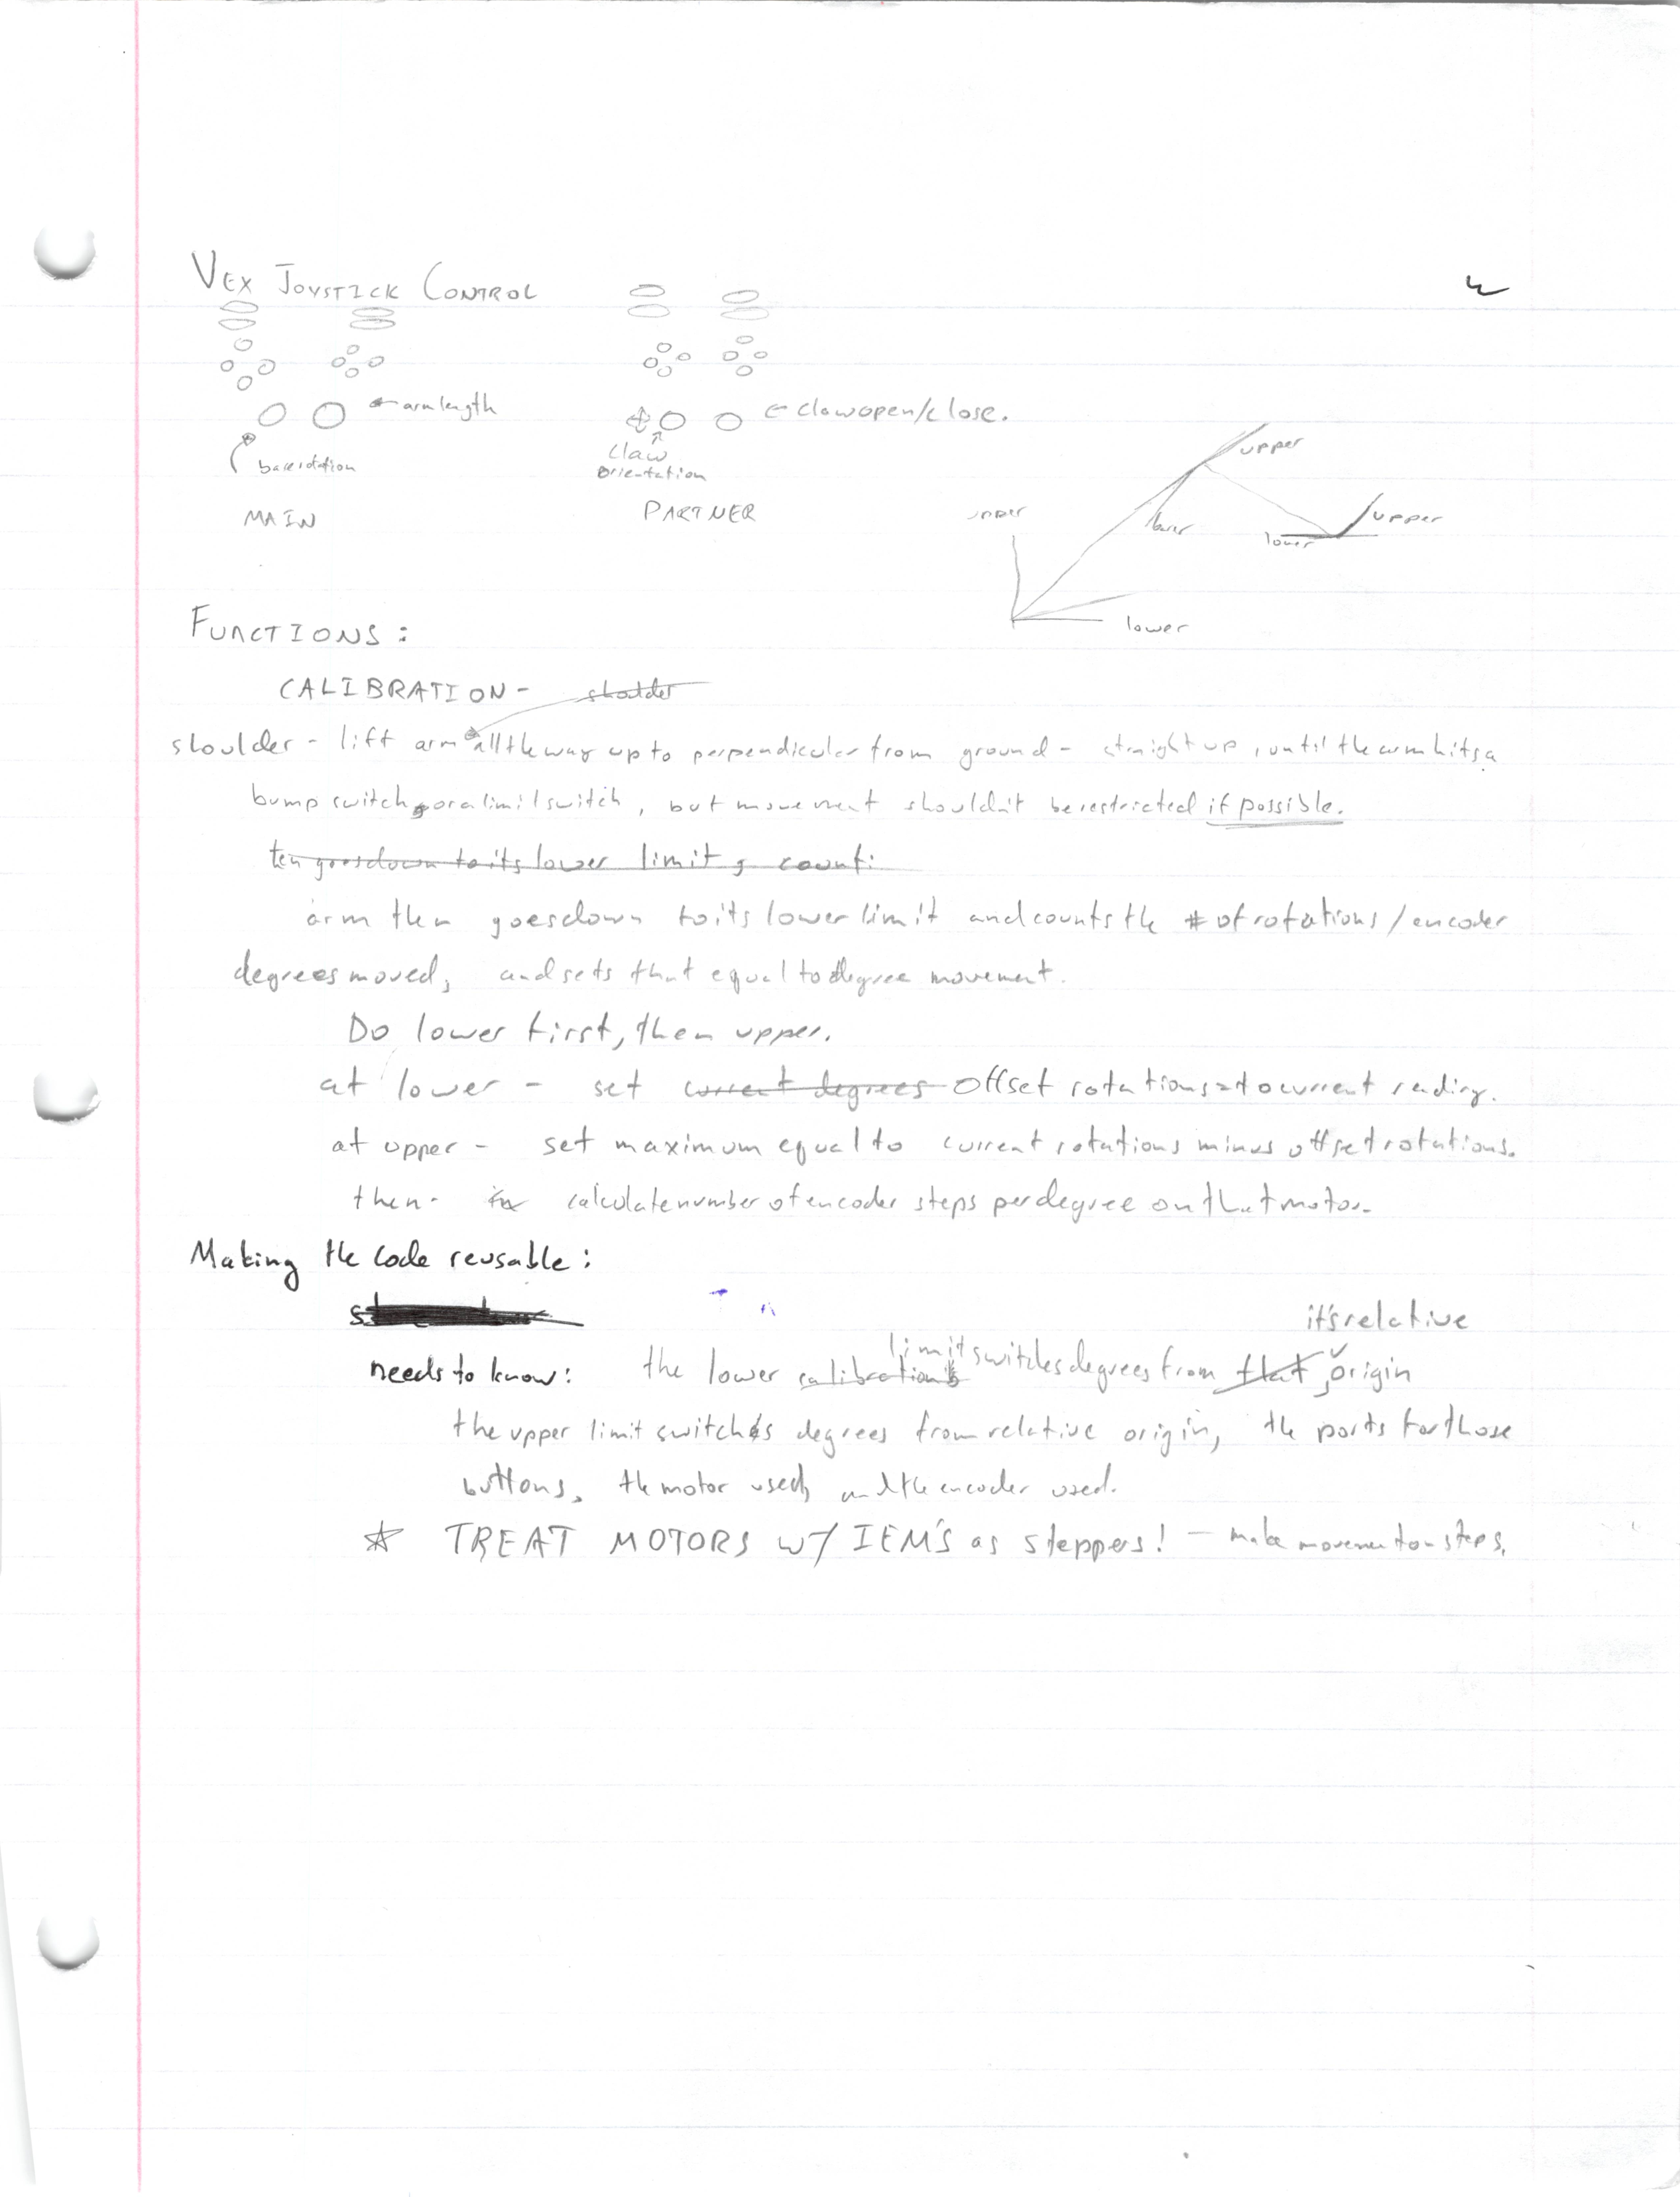 VEX JOYSTICK CONTROL
← arm length
← claw open/close.
base rotation
claw
orientation
MAIN
PARTNER
upper
upper
lower
upper
lower
lower
FUNCTIONS:
CALIBRATION - shoulder
shoulder - lift arm all the way up to perpendicular from ground - straight up, until the arm hits a
bump switch or a limit switch, but movement shouldn't be restricted if possible.
ten goes down to its lower limit, count:
arm then goes down to its lower limit and counts the # of rotations/encoder
degrees moved, and sets that equal to degree movement.
Do lower first, then upper.
at lower - set current degrees offset rotations = to current reading.
at upper - set maximum equal to current rotations minus offset rotations.
then - calculate number of encoder steps per degree on that motor.
Making the code reusable:
it's relative
needs to know: the lower calibration limit switches degrees from flat, origin
the upper limit switch's degrees from relative origin, the ports for those
buttons, the motor used, and the encoder used.
☆ TREAT MOTORS W/ IEM'S as steppers! - make movement on steps.